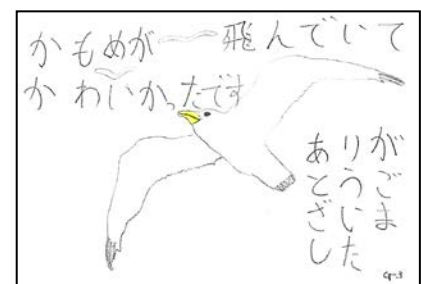 かもめが飛んでいて
かわいかったです
ありが
とうご
ざいま
した